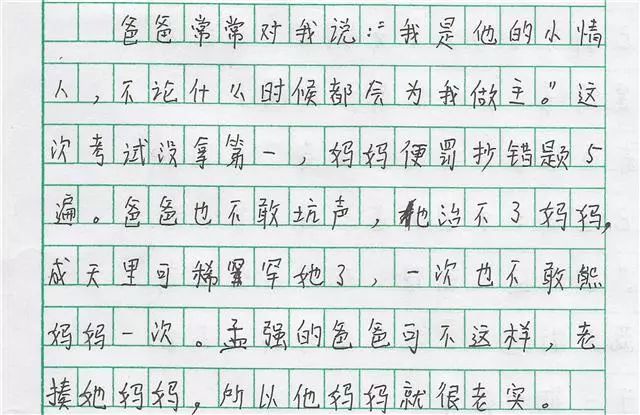 爸爸常常对我说:“我是他的小情
人,不论什么时候都会为我做主。”这
次考试没拿第一,妈妈便罚抄错题5
遍。爸爸也不敢坑声,他治不了妈妈,
成天里可稀罕她了,一次也不敢熊
妈妈一次。孟强的爸爸可不这样,老
揍她妈妈,所以他妈妈就很老实。